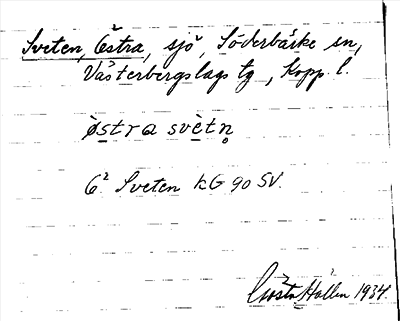 Sveten, Östra, sjö, Söderbärke sn,
Västerbergslags tg, Kopp. l.
östra svètn̥
6² Sveten kG 90 SV.
Gösta Hallén 1934.